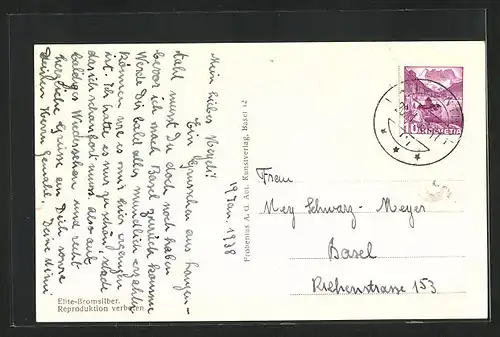 Mein liebes Vögeli!
Ein Grüsschen aus Langen-
thal musst Du doch noch haben
bevor ich nach Basel zurück komme
Werde Dir bald alles mündlich erzählen
können wie es mir hier ergangen
ist. Ich hatte es nur zu schön, schade
dass ich schon fort muss. Also auf
baldiges Wiedersehen und recht
herzliche Grüsse an Dich sowie
Deinen Herrn Gemahl. Deine Mimi
19 Jan. 1938
Elite-Bromsilber.
Reproduktion verboten
Frobenius A. G. Abt. Kunstverlag, Basel 12
10
HELVETIA
Frau
Meg Schwarz-Meyer
Basel
Riehenstrasse 153